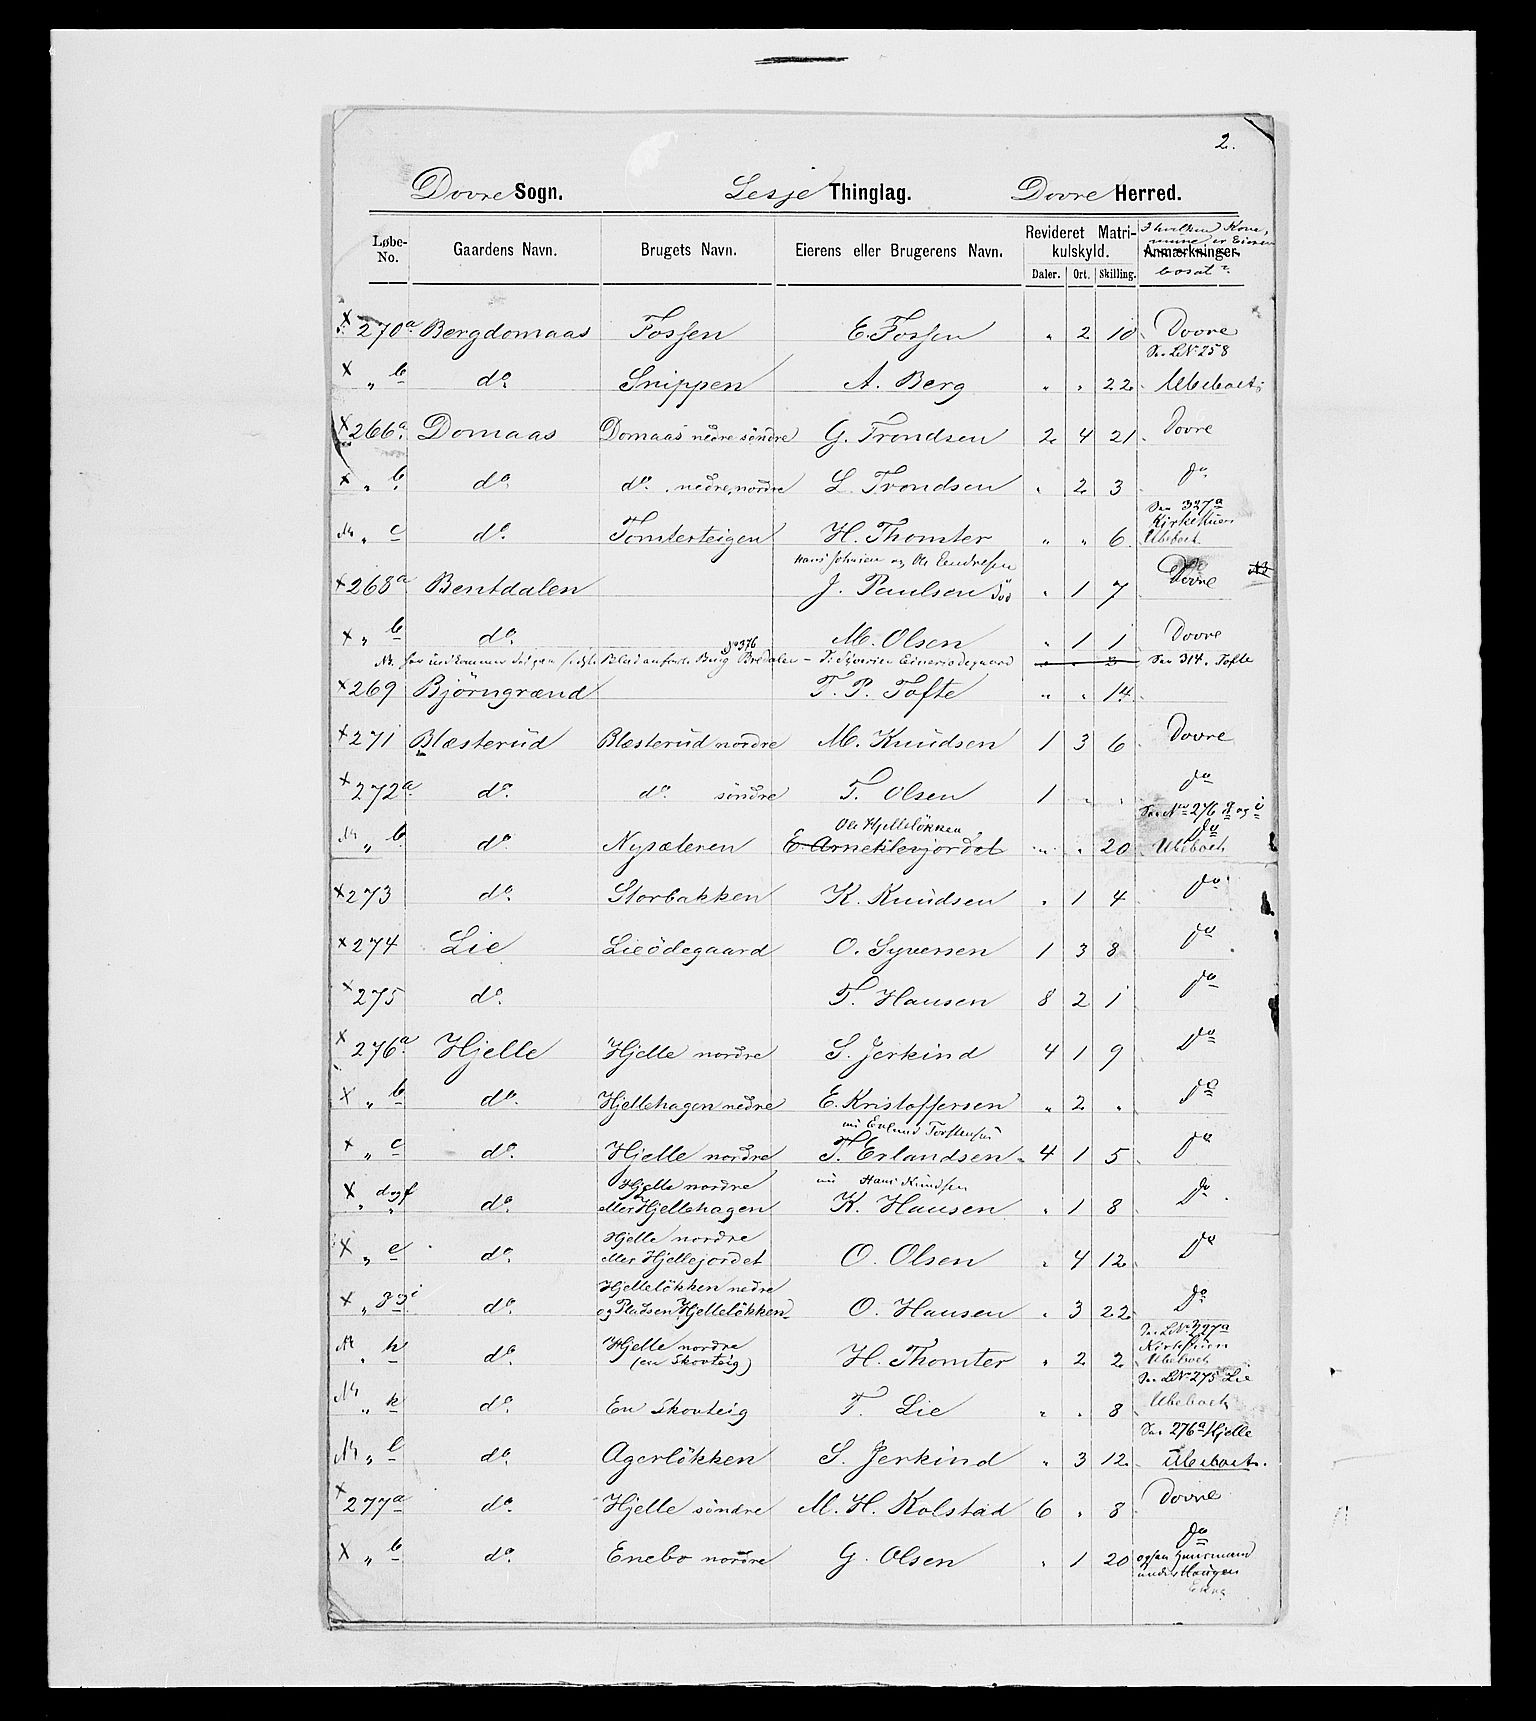 2.
Dovre Sogn. Lesje Thinglag. Dovre Herred.
Løbe-No. Gaardens Navn. Brugets Navn. Eierens eller Brugerens Navn. Revideret Matrikulskyld. Daler. Ort. Skilling. Anmærkninger. I hvilken Kommune er Eieren bosat?
x 270a Bergdomaas Fossen E. Fossen " 2 10 Dovre
x " b do. Snippen A. Berg " " 22 Se LNo 258 Ubeboet
x 266a Domaas Domaas nedre søndre G. Trondsen 2 4 21 Dovre
x " b do. do. nedre, nordre L. Trondsen " 2 3 do
" c do. Tomterteigen H. Thomter " " 6 Se 327a Kirketuen Ubeboet
Hans Johnsen og Ole Endresen
x 268a Bentdalen J. Paulsen " 1 7 Dovre
x " b do. M. Olsen " 1 1 Dovre
x 269 Björngrænd T. P. Tofte " " 14 Se 314. Tofte
x 271 Blæsterud Blæsterud nordre M. Knudsen 1 3 6 Dovre
x 272a do. do. søndre T. Olsen 1 " " do
Ole Hjelleløkken
" b do. Nysæteren E. Arneklevjordet " " 20 Se No 276 g og i do Ubeboet
x 273 do. Storbakken K. Knudsen " 1 4 do
x 274 Lie Lieödegaard O. Syversen 1 3 8 do
x 275 do. T. Hansen 8 2 1 do
x 276a Hjelle Hjelle nordre S. Jerkind 4 1 9 do
x " b do. Hjellehagen nedre E. Kristoffersen " 2 " do
nu Erland Torstensen
x " c do. Hjelle nordre T. Erlandsen 4 1 5 do
nu Hans Knudsen
x " d og f do. Hjelle nordre eller Hjellehagen K. Hansen " 1 8 do
x " e do. Hjelle nordre eller Hjellejordet O. Olsen " 4 12 do
x " g og i do. Hjelleløkken nedre og Pladsen Hjelleløkken O. Hansen " 3 22 do
" h do. Hjelle nordre (en Skovteig) H. Thomter " 2 2 Se LNo 327a Kirketuen Ubeboet
" k do. En Skovteig T. Lie " " 8 Se LNo 275 Lie Ubeboet
" l do. Agerløkken S. Jerkind " 3 12 Se 276a Hjelle Ubeboet.
x 277a do. Hjelle söndre M. H. Kolstad 6 " 8 Dovre
x " b do. Enebo nordre G. Olsen " 1 20 do ogsaa Huusmand under Haugen